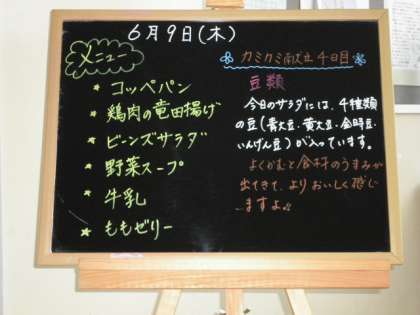 6月9日(木)
メニュー
★ コッペパン
★ 鶏肉の竜田揚げ
★ ビーンズサラダ
★ 野菜スープ
★ 牛乳
★ ももゼリー
カミカミ献立4日目
豆類
今日のサラダには、4種類
の豆(青大豆、黄大豆、金時豆、
いんげん豆)が入っています。
よくかむと食材のうまみが
出てきて、よりおいしく感じ
ますよ♪